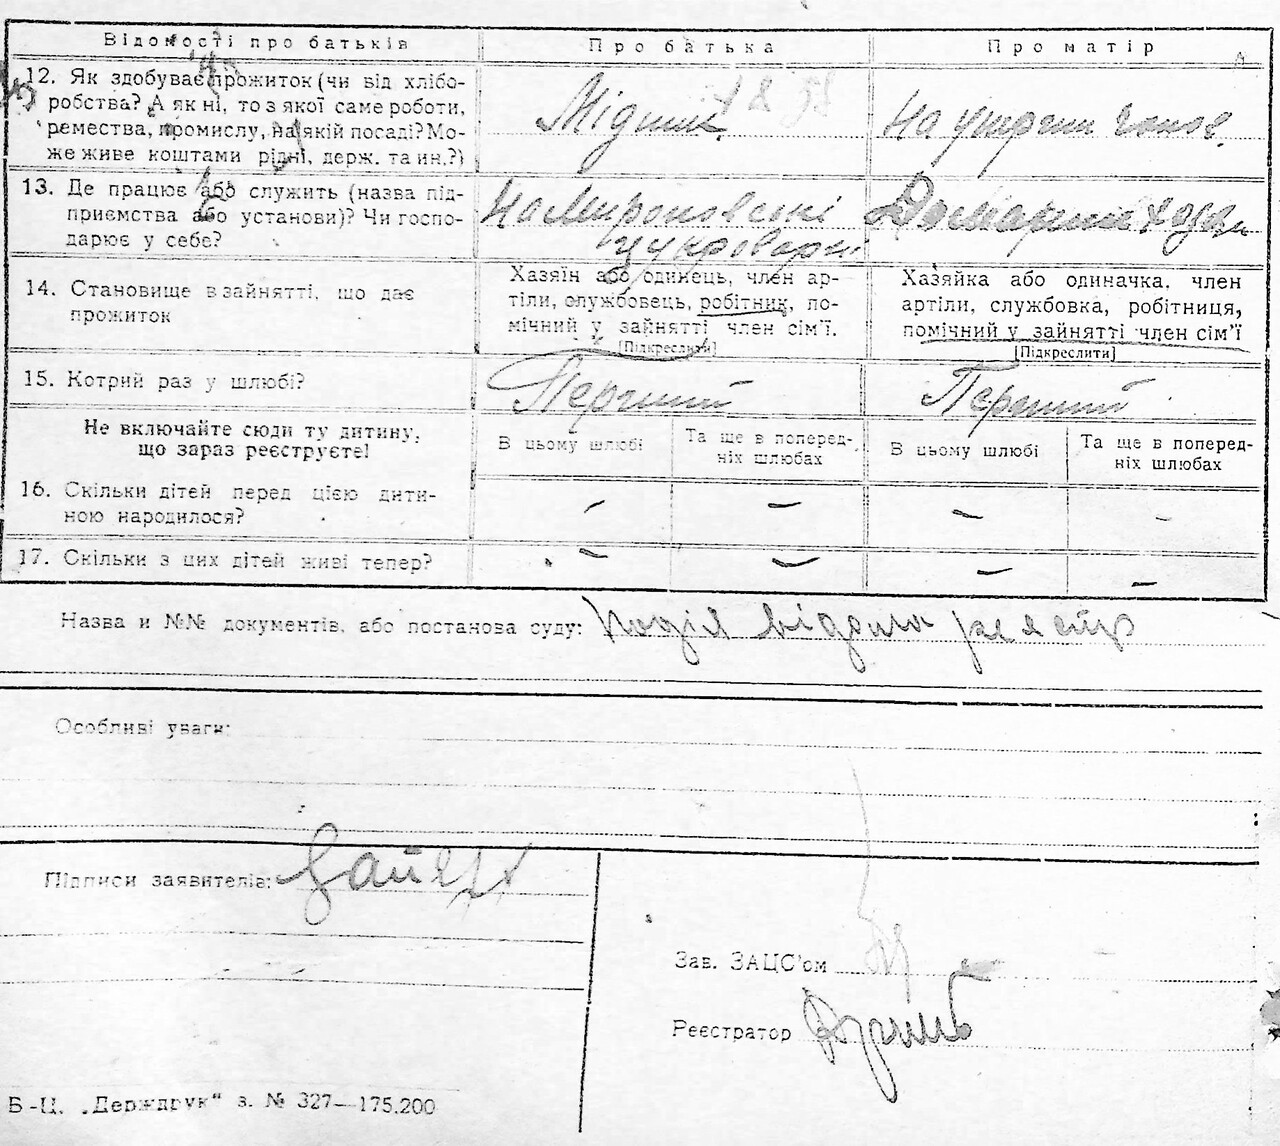 Відомості про батьків
Про батька
Про матір
12. Як здобуває прожиток (чи від хлібо-
робства? А як ні, то з якої саме роботи,
ремества, промислу, на якій посаді? Мо-
же живе коштами рідні, держ. та ин.?)
Мідник
На утрим чолов.
13. Де працює або служить (назва під-
приємства або установи)? Чи госпо-
дарює у себе?
На Мироновські
цукроварні
14. Становище в зайнятті, що дає
прожиток
Хазяїн або одинець, член ар-
тіли, службовець, робітник, по-
мічний у зайнятті член сім'ї.
[Підкреслити]
Хазяйка або одиначка, член
артіли, службовка, робітниця,
помічний у зайнятті член сім'ї
[Підкреслити]
15. Котрий раз у шлюбі?
Перший
Перший
Не включайте сюди ту дитину,
що зараз реєструєте!
В цьому шлюбі
Та ще в поперед-
ніх шлюбах
В цьому шлюбі
Та ще в поперед-
ніх шлюбах
16. Скільки дітей перед цією дити-
ною народилося?
– – – –
17. Скільки з цих дітей живі тепер?
– – – –
Назва и №№ документів, або постанова суду:
Особливі уваги:
Підписи заявителів:
Зав. ЗАЦС'ом
Реєстратор
Б-Ц. „Держдрук“ з. № 327—175.200